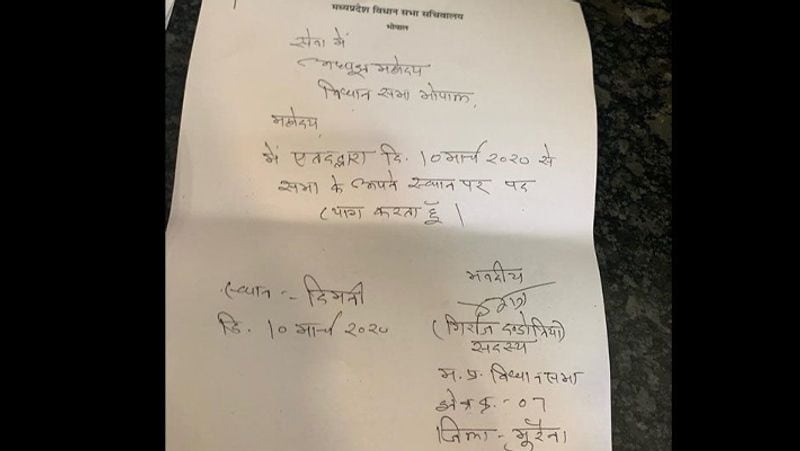 मध्यप्रदेश विधान सभा सचिवालय
भोपाल
सेवा में
अध्यक्ष महोदय
विधान सभा भोपाल,
महोदय,
मैं एतद्द्वारा दि. 10 मार्च २०२० से
सभा के अपने स्थान पर पद
त्याग करता हूँ |
भवदीय
स्थान :- दिमनी
दि. 10 मार्च २०२०
(गिर्राज दण्डोतिया)
सदस्य
म.प्र. विधानसभा
क्षेत्र क्र. - 07
जिला - मुरैना